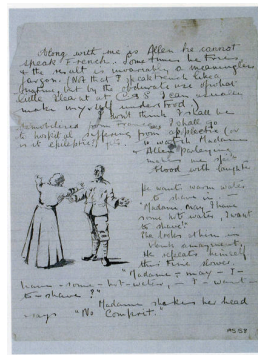 Along with me go Allen he cannot
speak French. Sometimes he tries
& the result is invariably a meaningless
jargon. (Not that I speak French like a
native, but by the use of what
little I learnt at I can usually
make myself understood).
I don't think I shall be
France. I shall go
to hospital suffering from apoplectic (or
is it epileptic) fits. to watch Madame
& Allen
makes me
blood with laughter
He wants warm water
to shave in
"Madame may I have
some hot water, I want
to shave."
She looks at him in
blank amazement.
He repeats himself
this time slower.
"Madame – may – I –
have – some – hot – water, – I – want –
to – shave?"
Madame shakes her head
says "No Compris."